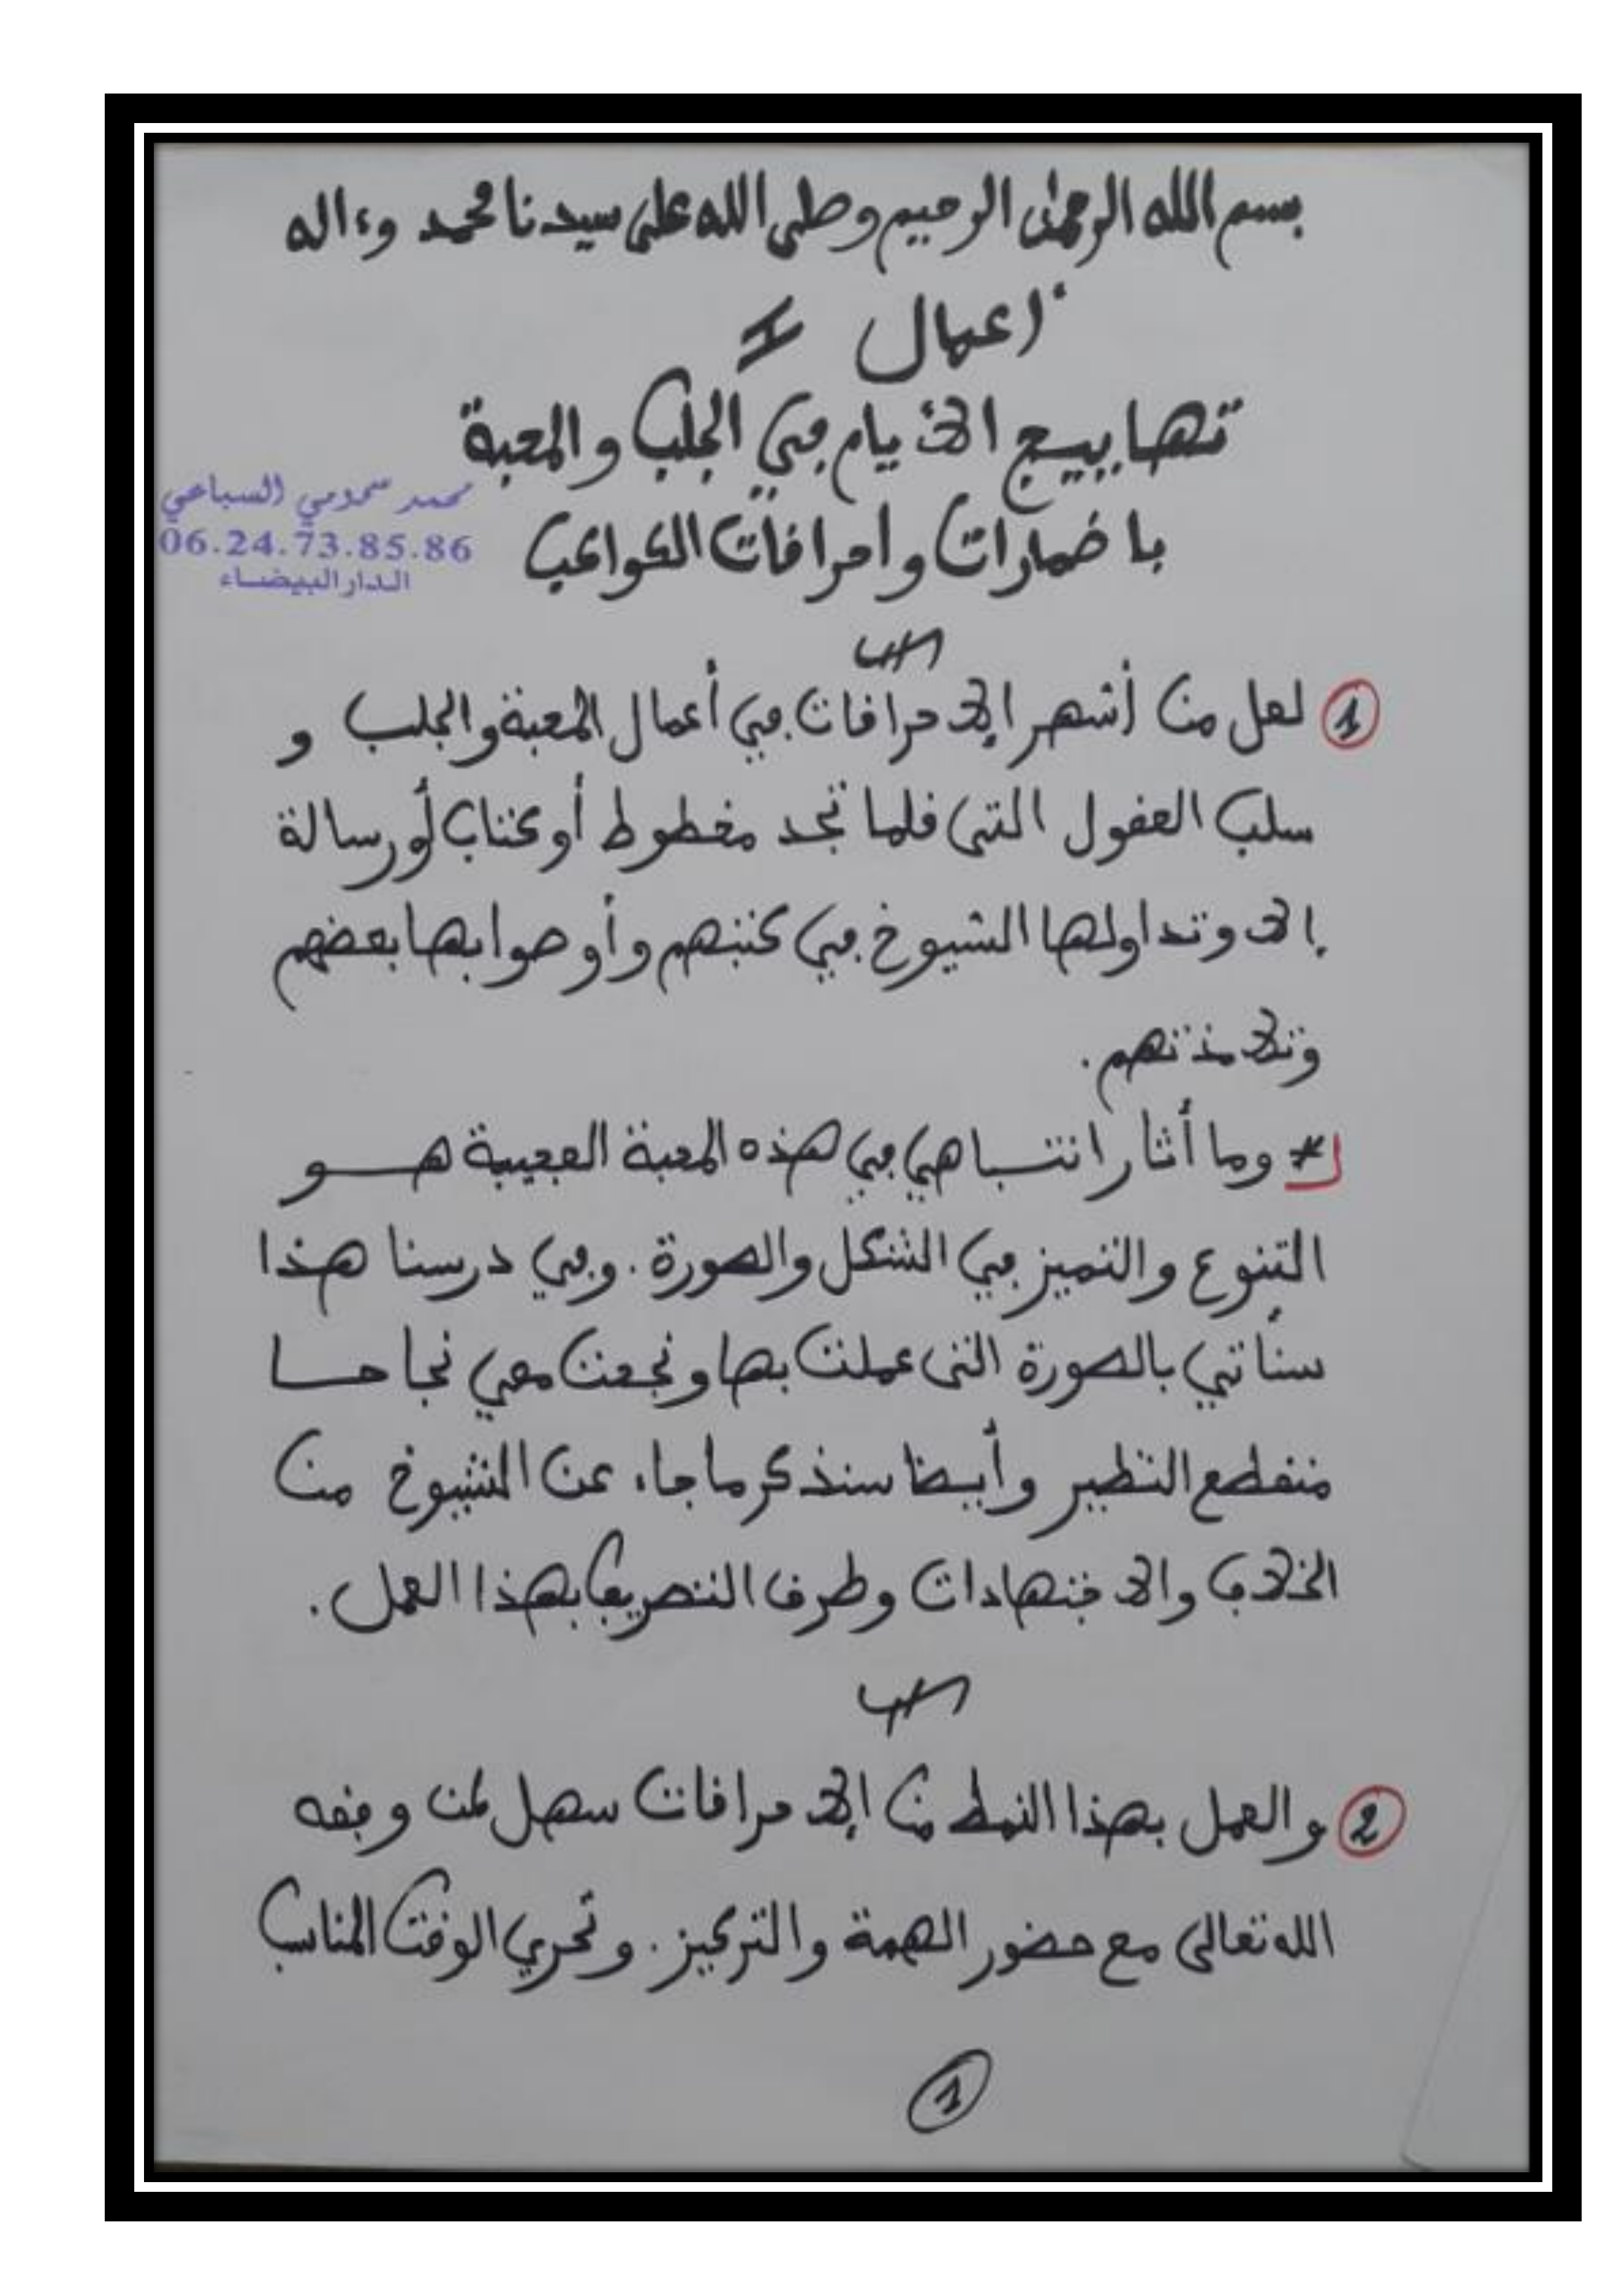 بسم الله الرحمن الرحيم وصلى الله على سيدنا محمد وءاله
اعمال
تهاييج الأيام في الجلب والمحبة
محمد سحومي السباعي
06.24.73.85.86
الدار البيضاء
باضمارات واحراقات الكواعب
① لعل من أشهر الإحراقات في أعمال المحبة والجلب و
سلب العقول التي قلما تجد مخطوط أو كتاب أو رسالة
إلا وتداولها الشيوخ في كتبهم وأوصوا بها بعضهم
وتلامذتهم.
# وما أثار انتباهي في هذه المحبة العجيبة هو
التنوع والتميز في الشكل والصورة. وفي درسنا هذا
سنأتي بالصورة التي عملت بها ونجحت معي نجاحا
منقطع النظير وأيضا سنذكر ماجاء عن الشيوخ من
الخلاف والاجتهادات وطرق التصريف بهذا العمل.
② والعمل بهذا النمط من الإحراقات سهل لمن وفقه
الله تعالى مع حضور الهمة والتركيز. وتحري الوقت المناسب
①